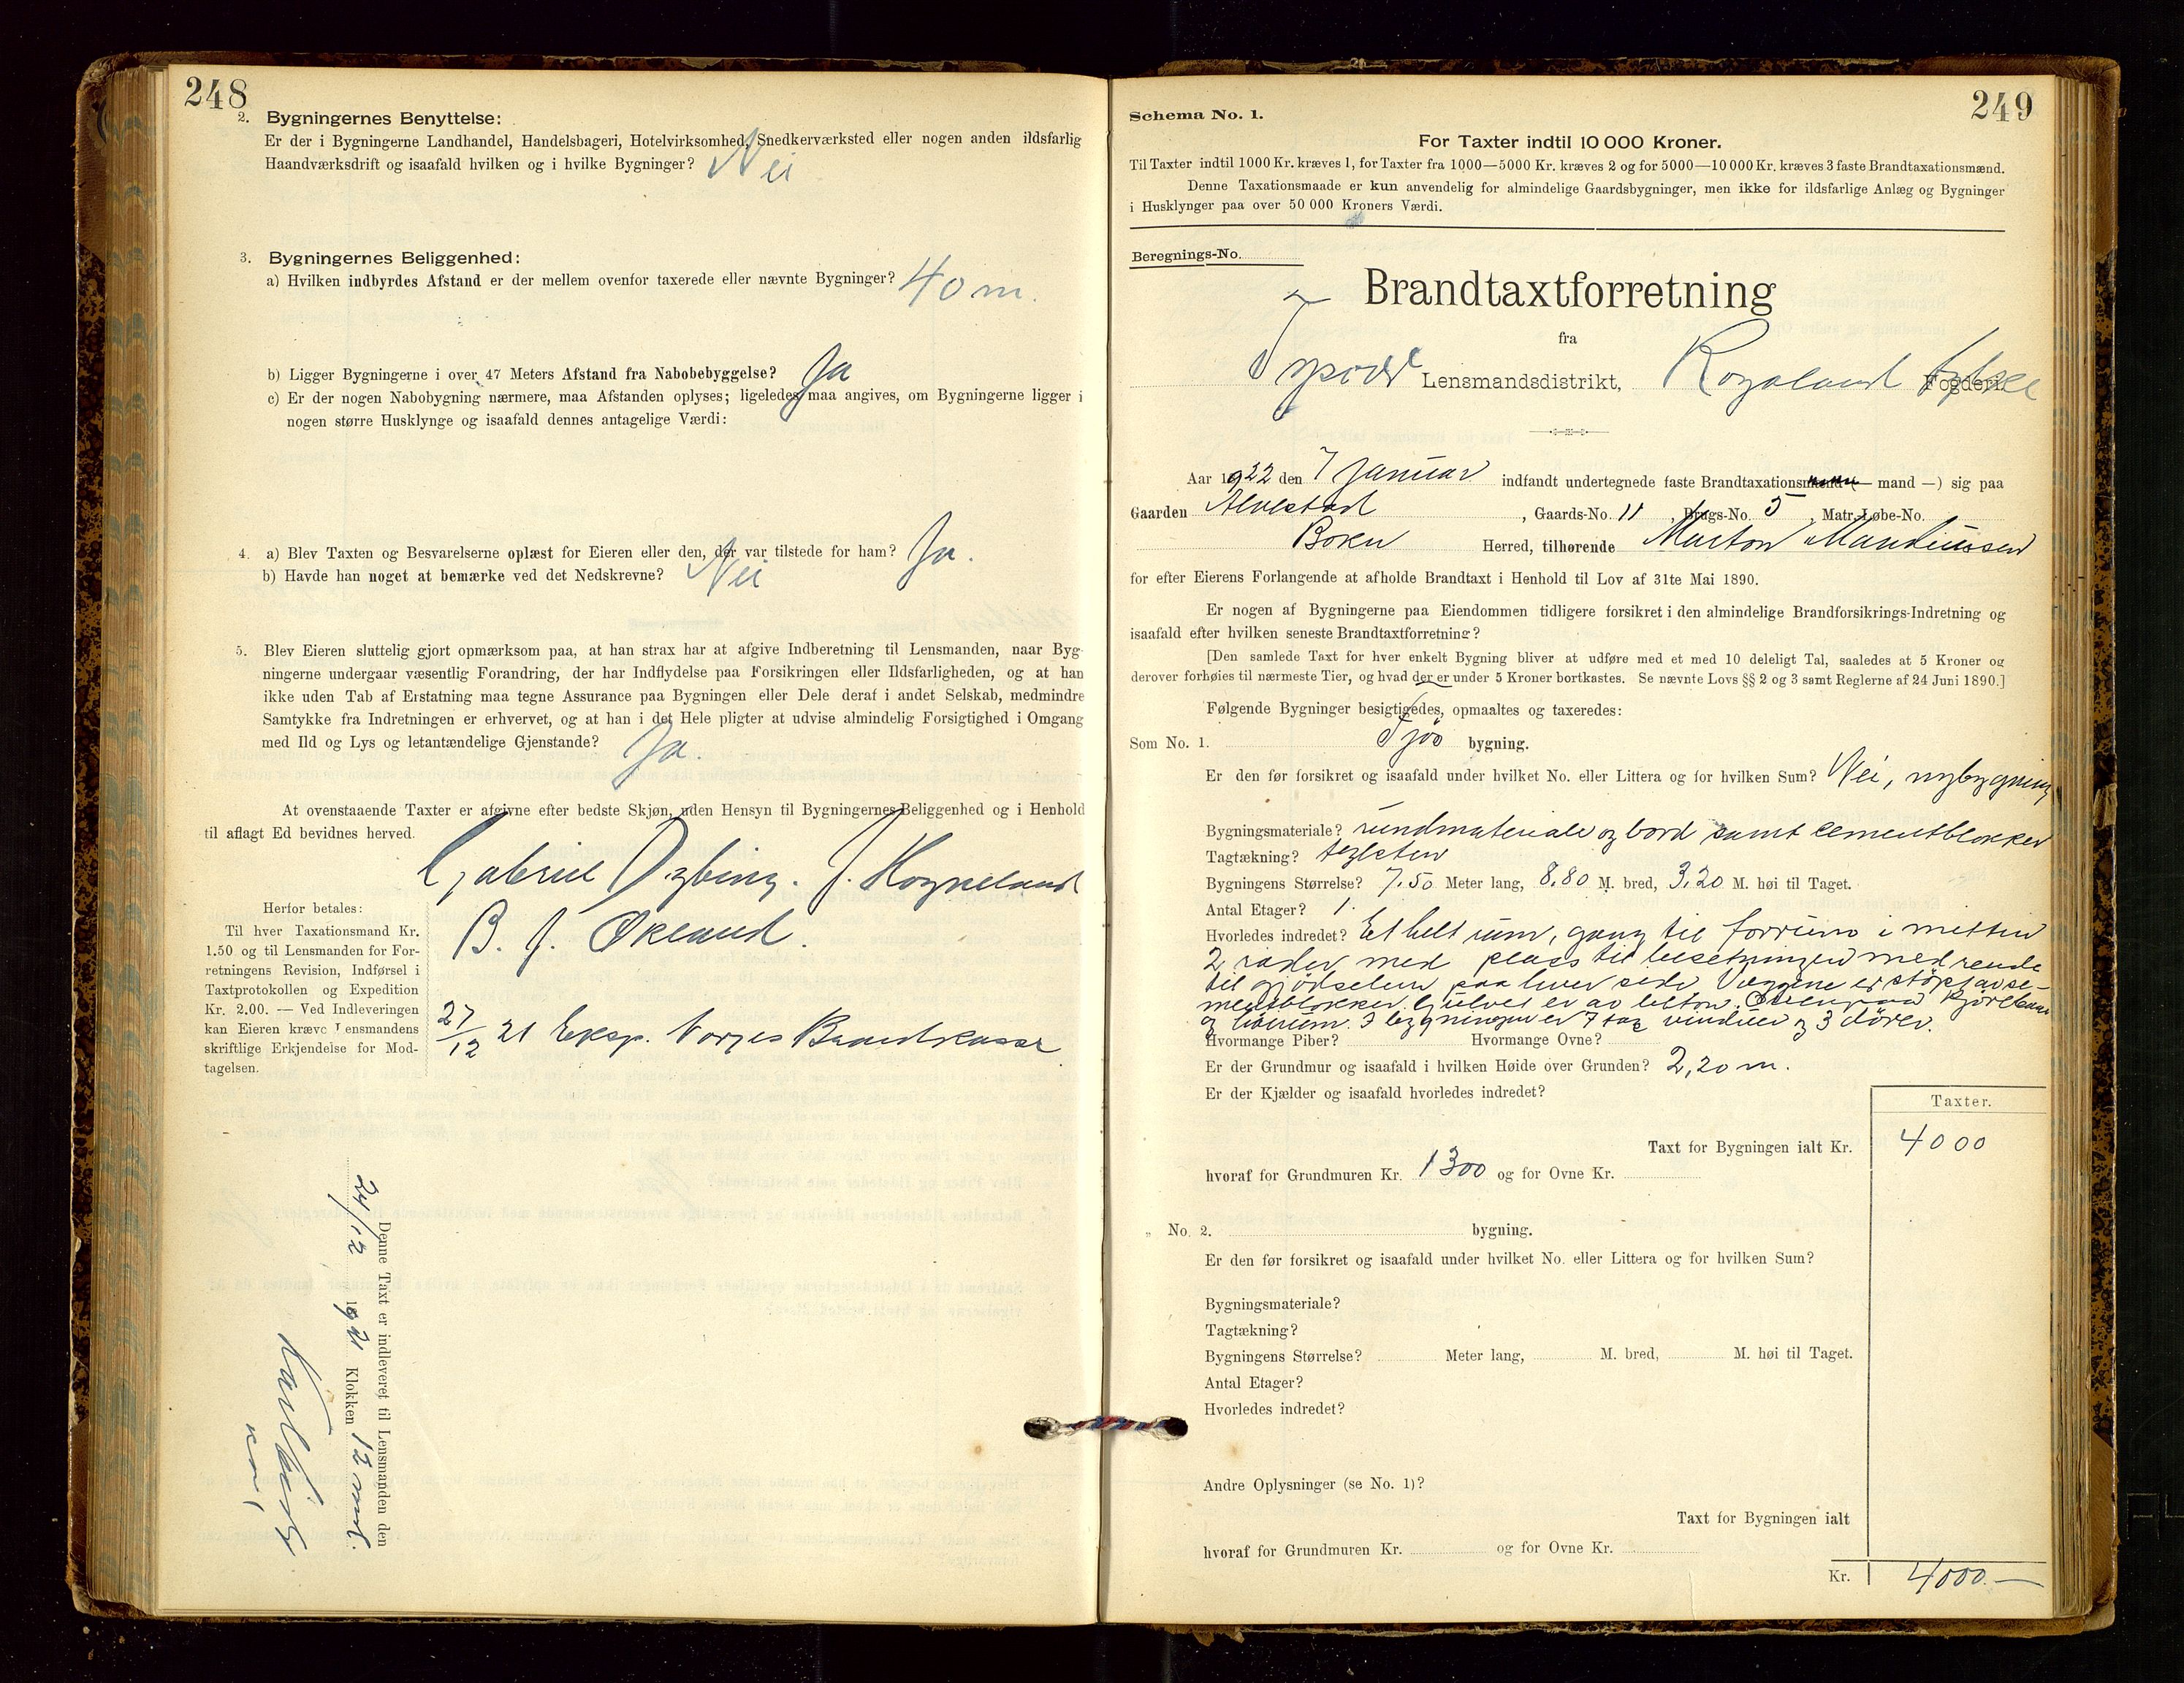 248
2. Bygningernes Benyttelse:
Er der i Bygningerne Landhandel, Handelsbageri, Hotelvirksomhed, Snedkerværksted eller nogen anden ildsfarlig
Haandværksdrift og isaafald hvilken og i hvilke Bygninger? Nei
3. Bygningernes Beliggenhed:
a) Hvilken indbyrdes Afstand er der mellem ovenfor taxerede eller nævnte Bygninger? 40 m.
b) Ligger Bygningerne i over 47 Meters Afstand fra Nabobebyggelse? Ja
c) Er der nogen Nabobygning nærmere, maa Afstanden oplyses; ligeledes maa angives, om Bygningerne ligger i
nogen større Husklynge og isaafald dennes antagelige Værdi:
4. a) Blev Taxten og Besvarelserne oplæst for Eieren eller den, der var tilstede for ham? Ja.
b) Havde han noget at bemærke ved det Nedskrevne? Nei
5. Blev Eieren sluttelig gjort opmærksom paa, at han strax har at afgive Indberetning til Lensmanden, naar Byg-
ningerne undergaar væsentlig Forandring, der har Indflydelse paa Forsikringen eller Ildsfarligheden, og at han
ikke uden Tab af Erstatning maa tegne Assurance paa Bygningen eller Dele deraf i andet Selskab, medmindre
Samtykke fra Indretningen er erhvervet, og at han i det Hele pligter at udvise almindelig Forsigtighed i Omgang
med Ild og Lys og letantændelige Gjenstande? Ja.
At ovenstaaende Taxter er afgivne efter bedste Skjøn, uden Hensyn til Bygningernes Beliggenhed og i Henhold
til aflagt Ed bevidnes herved.
Gabriel Dybing. J. Høyneland
B. J. Økland.
Herfor betales:
Til hver Taxationsmand Kr.
1.50 og til Lensmanden for For-
retningens Revision, Indførsel i
Taxtprotokollen og Expedition
Kr. 2.00. — Ved Indleveringen
kan Eieren kræve Lensmandens
skriftlige Erkjendelse for Mod-
tagelsen.
27/12 21 Eksp. Norges Brandkasse
Denne Taxt er indleveret til Lensmanden den
24/12 1921 Klokken 12 midd.
249
Schema No. 1.
For Taxter indtil 10 000 Kroner.
Til Taxter indtil 1000 Kr. kræves 1, for Taxter fra 1000—5000 Kr. kræves 2 og for 5000—10 000 Kr. kræves 3 faste Brandtaxationsmænd.
Denne Taxationsmaade er kun anvendelig for almindelige Gaardsbygninger, men ikke for ildsfarlige Anlæg og Bygninger
i Husklynger paa over 50 000 Kroners Værdi.
Beregnings-No.
Brandtaxtforretning
fra
Lensmandsdistrikt, Rogaland fylke Fogderi.
Aar 1922 den 7 Januar indfandt undertegnede faste Brandtaxationsmænd (— mand —) sig paa
Gaarden Alvestad, Gaards-No. 11, Brugs-No. 5, Matr.-Løbe-No.
Bokn Herred, tilhørende Morton
for efter Eierens Forlangende at afholde Brandtaxt i Henhold til Lov af 31te Mai 1890.
Er nogen af Bygningerne paa Eiendommen tidligere forsikret i den almindelige Brandforsikrings-Indretning og
isaafald efter hvilken seneste Brandtaxtforretning?
[Den samlede Taxt for hver enkelt Bygning bliver at udføre med et med 10 deleligt Tal, saaledes at 5 Kroner og
derover forhøies til nærmeste Tier, og hvad der er under 5 Kroner bortkastes. Se nævnte Lovs §§ 2 og 3 samt Reglerne af 24 Juni 1890.]
Følgende Bygninger besigtigedes, opmaaltes og taxeredes:
Som No. 1. Fjøs bygning.
Er den før forsikret og isaafald under hvilket No. eller Littera og for hvilken Sum? Nei, nybygning
Bygningsmateriale? rundmateriale og bord samt cementblokker
Tagtækning? teglsten
Bygningens Størrelse? 7.50 Meter lang, 8.80 M. bred, 3.20 M. høi til Taget.
Antal Etager? 1.
Hvorledes indredet? Et helt rum, gang til forrum i mitten
2 rader med plass til besetningen med rende
til gjødselen paa hver side. Væggene er støpt av se-
mentblokker gulvet er av beton. kjørebane
og I bygningen er 7 fag vinduer og 3 dører.
Hvormange Piber? Hvormange Ovne?
Er der Grundmur og isaafald i hvilken Høide over Grunden? 2,20 m.
Er der Kjælder og isaafald hvorledes indredet?
Taxter.
Taxt for Bygningen ialt Kr. 4000
hvoraf for Grundmuren Kr. 1300 og for Ovne Kr.
„ No. 2. bygning.
Er den før forsikret og isaafald under hvilket No. eller Littera og for hvilken Sum?
Bygningsmateriale?
Tagtækning?
Bygningens Størrelse? Meter lang, M. bred, M. høi til Taget.
Antal Etager?
Hvorledes indredet?
Andre Oplysninger (se No. 1)?
Taxt for Bygningen ialt
hvoraf for Grundmuren Kr. og for Ovne Kr.
Kr. 4000.—